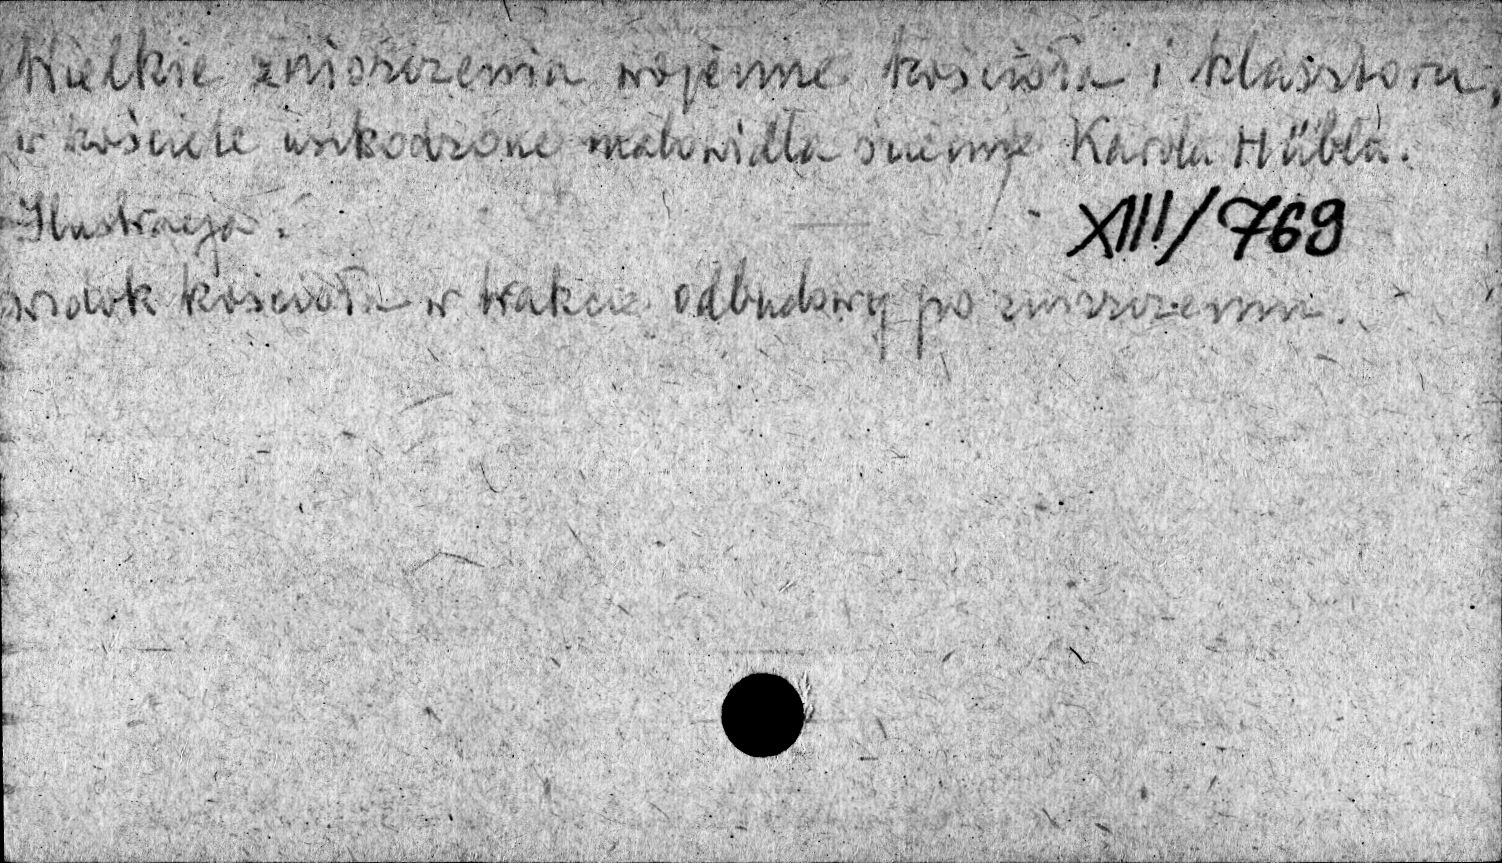 Wielkie zniszczenia wojenne kościoła i klasztoru;
w kościele uszkodzone malowidła ścienne Karola Hübla.
Ilustracja:
XIII/769
widok kościoła w trakcie odbudowy po zniszczeniu.